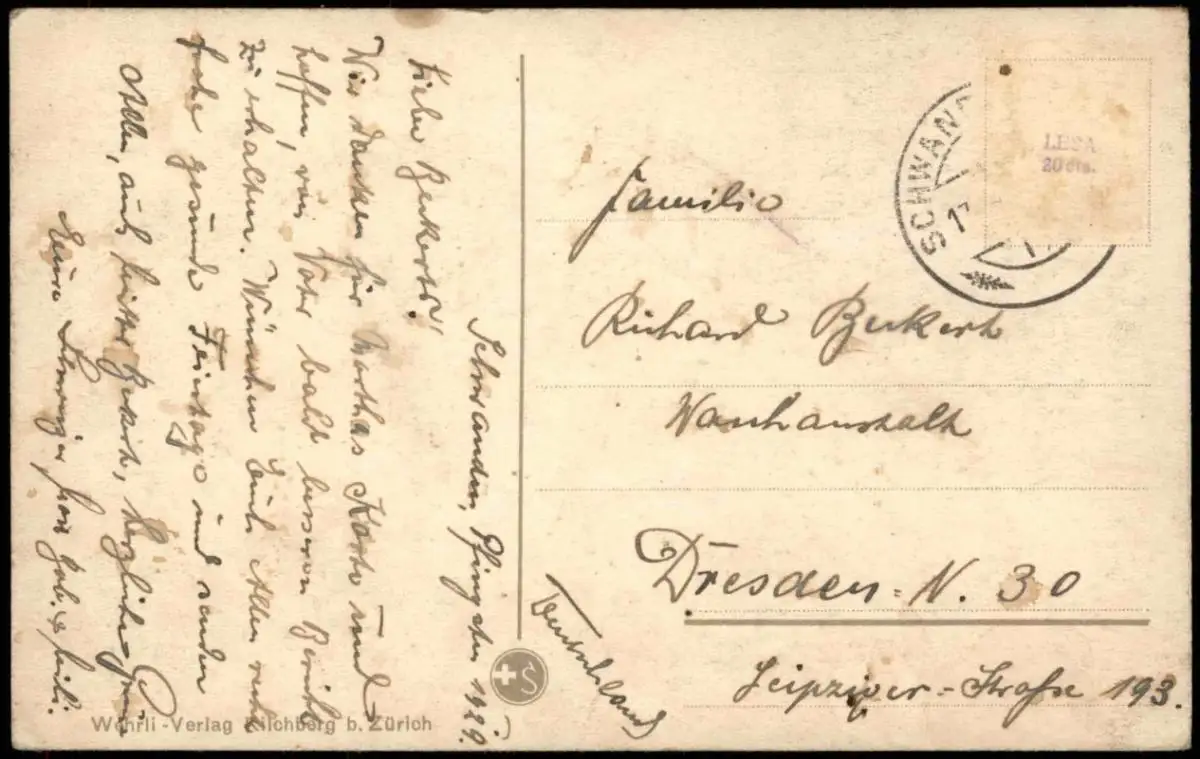 Schwanden, Pfingsten 1929.
Lieben Beckerts,
Wir danken für Marthas Karte und
hoffen, von Vater bald besseren Bericht
zu erhalten. Wünschen Euch Allen recht
frohe gesunde Feiertage und senden
Allen, auch
herzliche
Eure
Familie
Richard Beckert
Dresden-N. 30
Leipziger-Straße 193.
Deutschland
SCHWAND
LESA
20 cts.
Wehrli-Verlag Kilchberg b. Zürich